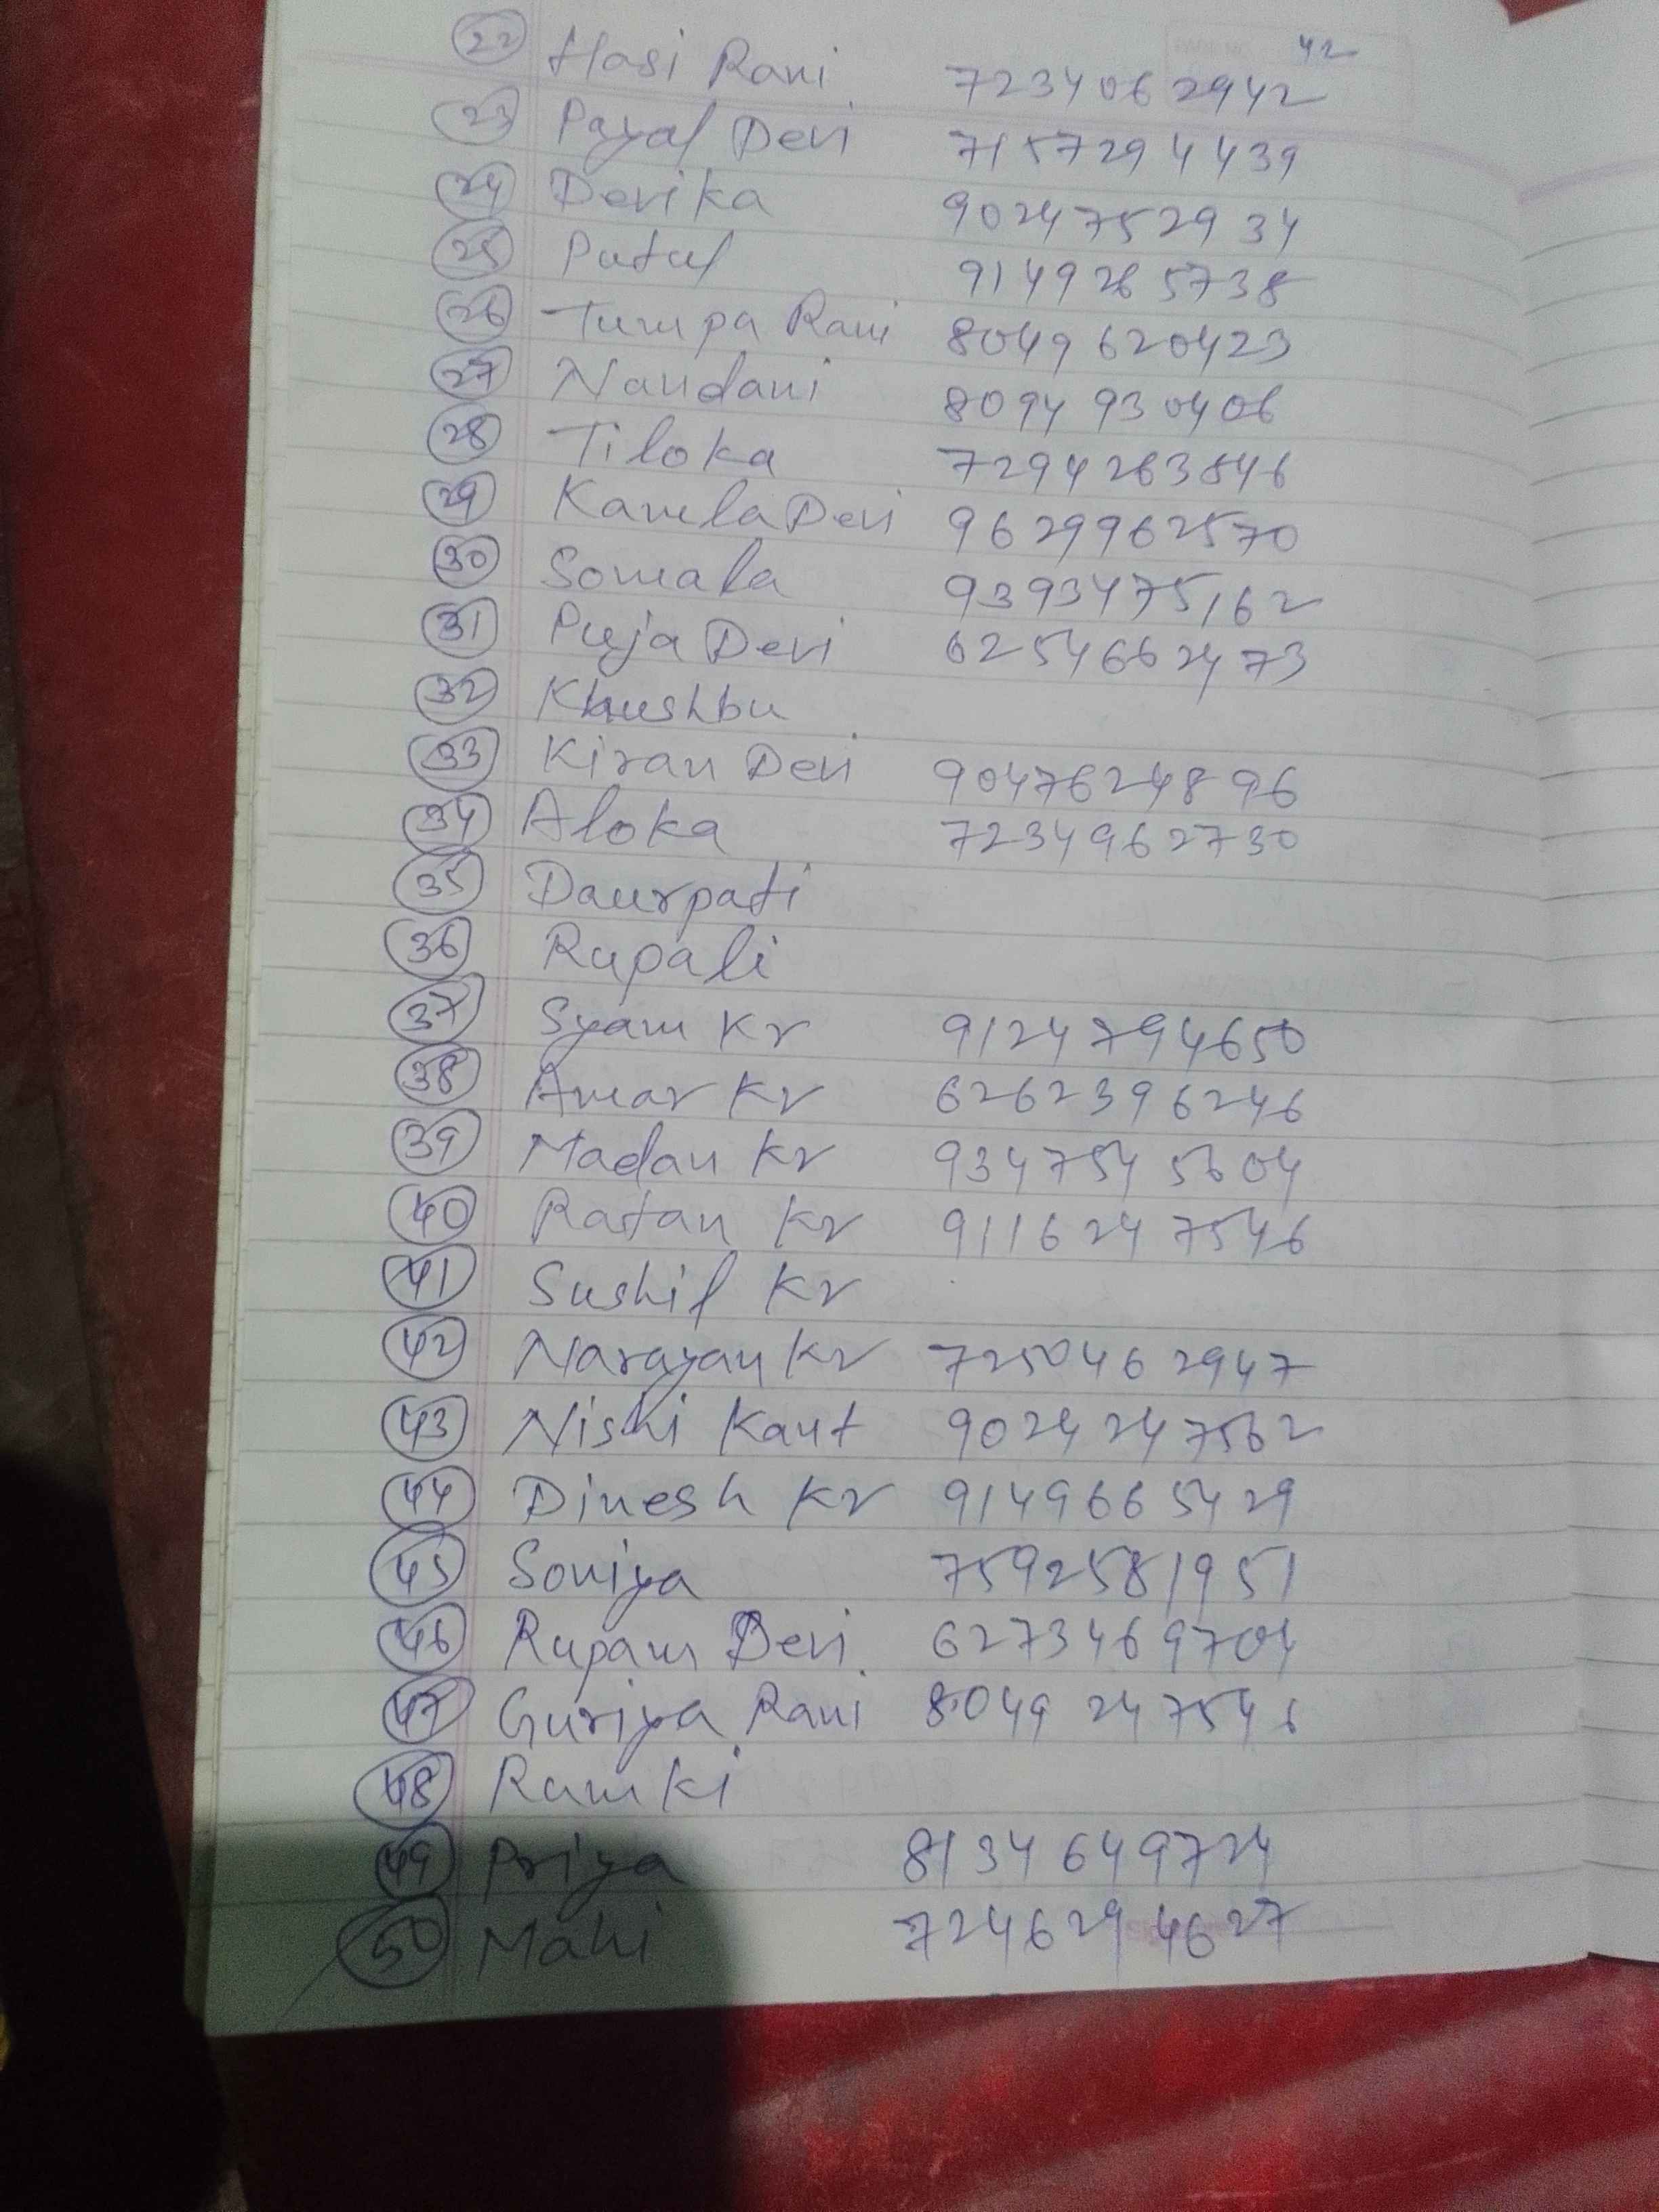 42
22 Hasi Rani 7234062942
23 Payal Devi 7157294439
24 Devika 9024752934
25 Putul 9149265738
26 Tumpa Rani 8049620423
27 Nandani 8094930406
28 Tiloka 7294263846
29 Kamla Devi 9629962570
30 Somala 9393475162
31 Puja Devi 6254662473
32 Khushbu
33 Kiran Devi 9047624896
34 Aloka 7234962730
35 Daurpati
36 Rupali
37 Syam Kr 9124794650
38 Amar Kr 6262396246
39 Madan Kr 9347545604
40 Ratan Kr 9116247546
41 Sushil Kr
42 Narayan Kr 7250462947
43 Nishi Kant 9024247562
44 Dinesh Kr 9149665429
45 Soniya 7592581951
46 Rupam Devi 6273469704
47 Guriya Rani 8049247546
48 Rumki
49 Priya 8134649724
50 Mahi 7246294627